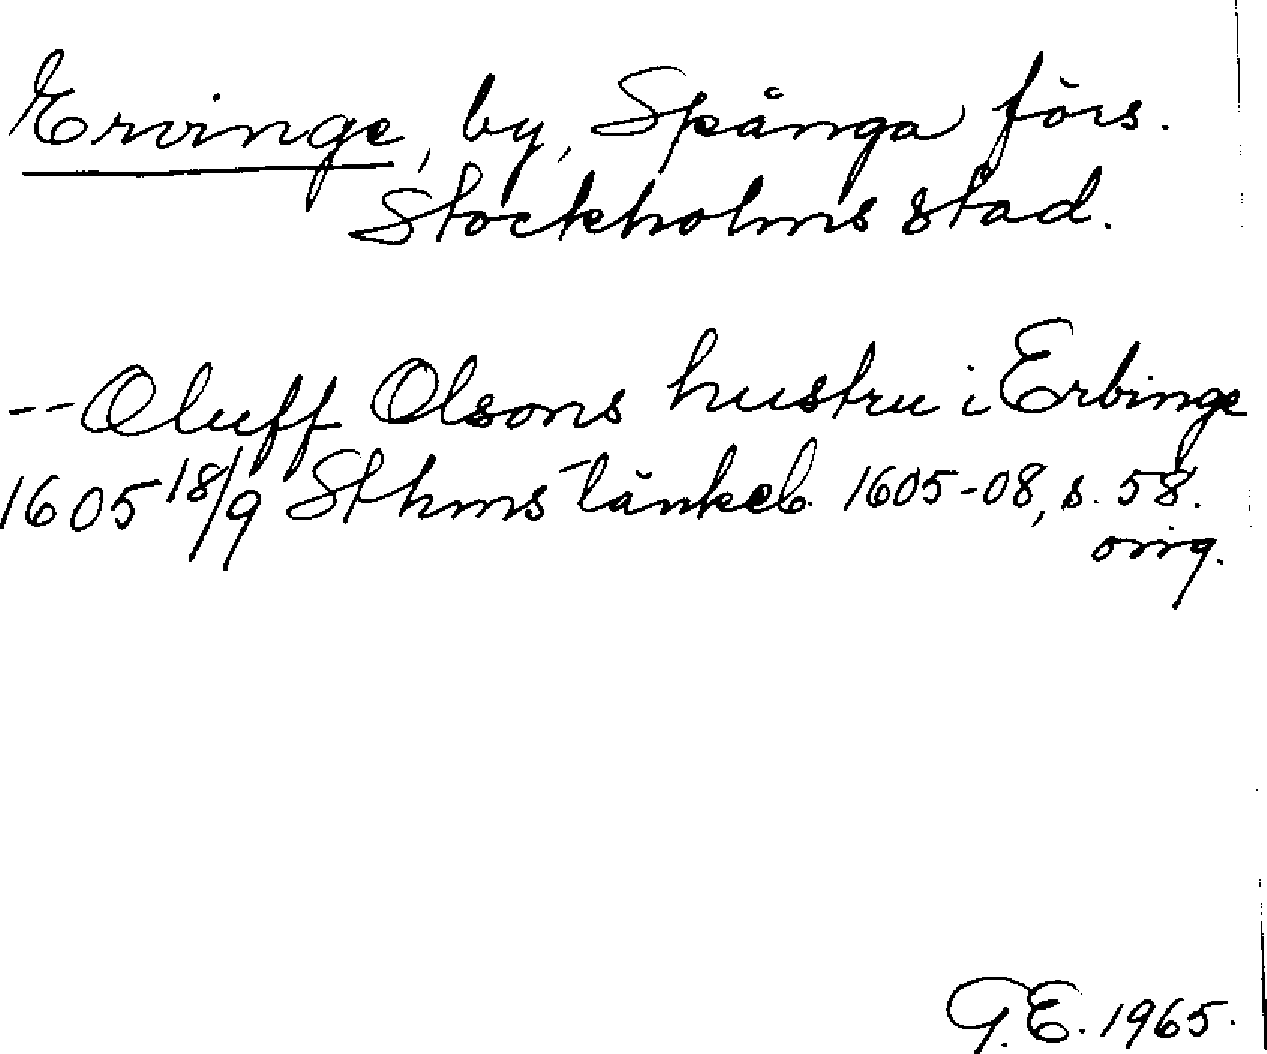 Ervinge, by, Spånga förs.
Stockholms stad.
-- Oluff Olsons hustru i Erbinge
1605 18/9 Sthms tänkeb. 1605-08, s. 58.
orig.
G.E. 1965.